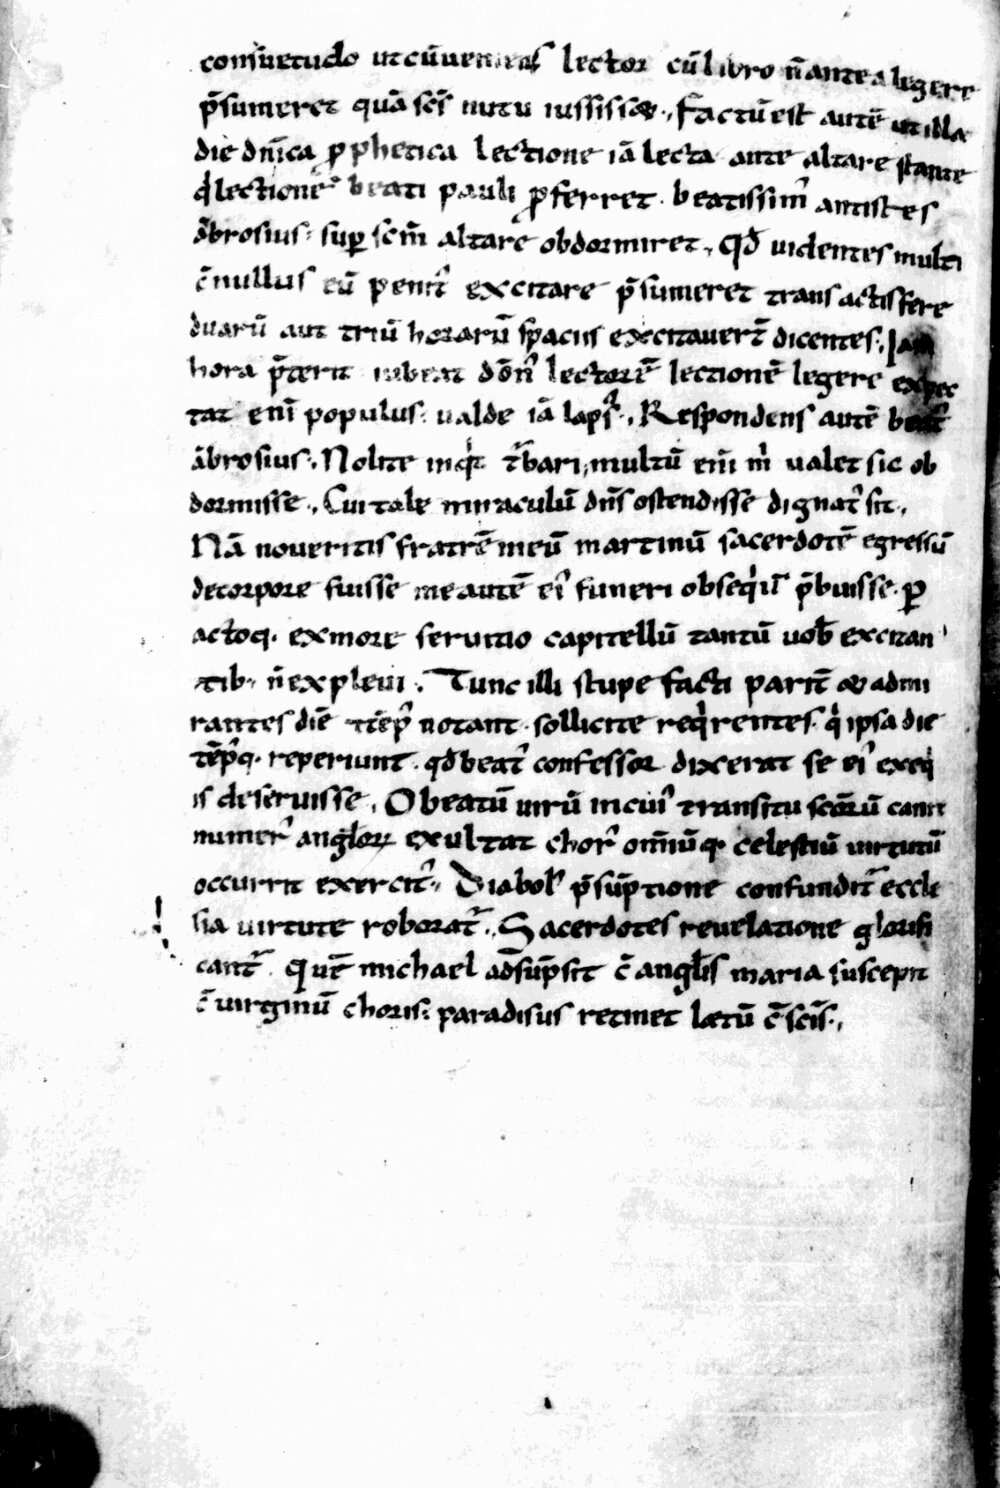 consuetudo ut cū veniens lector cū libro n̄ antea legere
p̄sumeret quā scs̄ nutu iussisset·, Factū est autē ut illa
die dn̄ica pphetica lectione iā lecta ante altare stante
q' lectionē beati pauli pferret· beatissim' antistes
ābrosius· sup scm̄ altare obdormiret·, Qd̄ videntes multi
c̄ nullus eū penit' excitare p̄sumeret transactis fere
duarū aut triū horarū spaciis excitauert̄ dicentes·, Iam
hora p̄terit iubeat dōn' lectorē lectionē legere expec
tat enī populus· valde iā laps'·, Respondens autē beat'
ābrosius·, Nolite inqt t'bari, multū em̄ m' valet sic ob
dormisse·, Cui tale miraculū dn̄s ostendisse dignat' sit·,
Nā noveritis fratrē meū martinū sacerdotē egressū
de corpore fuisse me autē ei' funeri obseqiū p̄buisse· p
actoq· ex more servitio capitellū tantū vob̄ excitan
tib· n̄ explevi·, Tunc illi stupefacti parit̄ & admi
rantes diē tēp' notant· sollicite reqrentes· q' ipsa die
tēp'q· reperiunt· qd̄ beat' confessor dixerat se ei' exeq
is deservisse·, O beatū virū in cui' transitu scōrū canit
numer' anglor̄ exultat chor' om̄iūq· celestiū virtutū
occurrit exercit'·, Diabol' p̄sūptione confundit̄ eccle
sia virtute roborat̄·, Sacerdotes revelatione glorifi
cant̄· Quē michael adsūpsit c̄ anglis maria suscepit
c̄ virginū choris· paradisus retinet lætū c̄ scīs·,